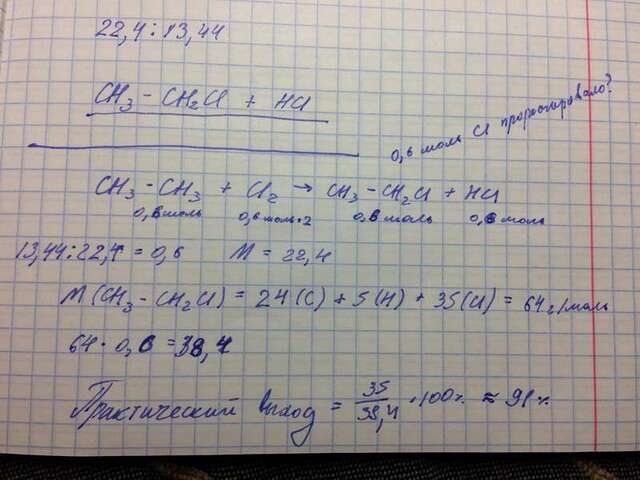 22,4 : 13,44
CH₃ – CH₂Cl + HCl
0,6 моль Cl прореагировало?
CH₃ – CH₃ + Cl₂ → CH₃ – CH₂Cl + HCl
0,6 моль 0,6 моль·2 0,6 моль 0,6 моль
13,44 : 22,4 = 0,6 M = 22,4
M (CH₃ – CH₂Cl) = 24 (C) + 5 (H) + 35 (Cl) = 64 г/моль
64 · 0,6 = 38,4
Практический выход = 35/38,4 · 100% ≈ 91%